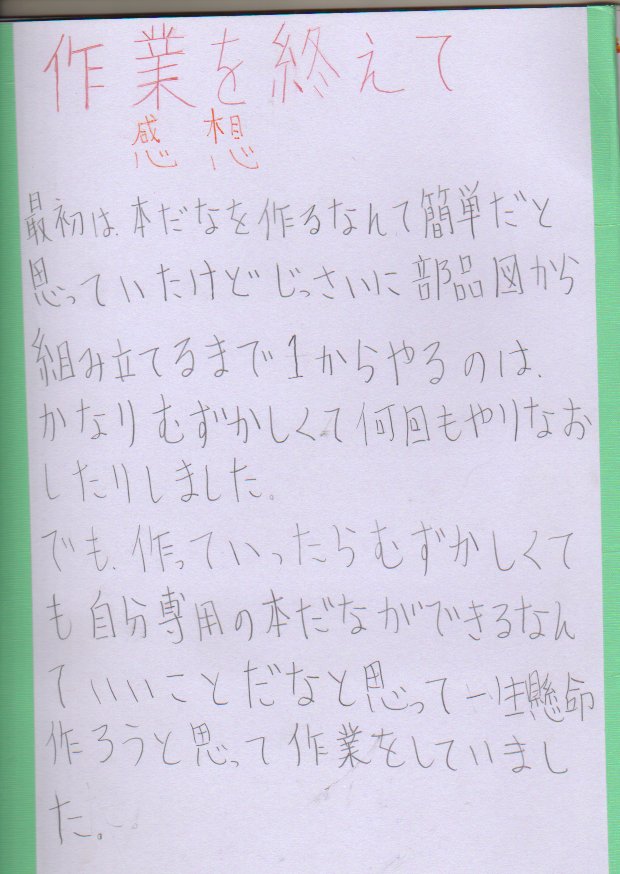 作業を終えて
感想
最初は、本だなを作るなんて簡単だと
思っていたけどじっさいに部品図から
組み立てるまで1からやるのは、
かなりむずかしくて何回もやりなお
したりしました。
でも、作っていったらむずかしくて
も自分専用の本だなができるなん
ていいことだなと思って一生懸命
作ろうと思って作業をしていまし
た。